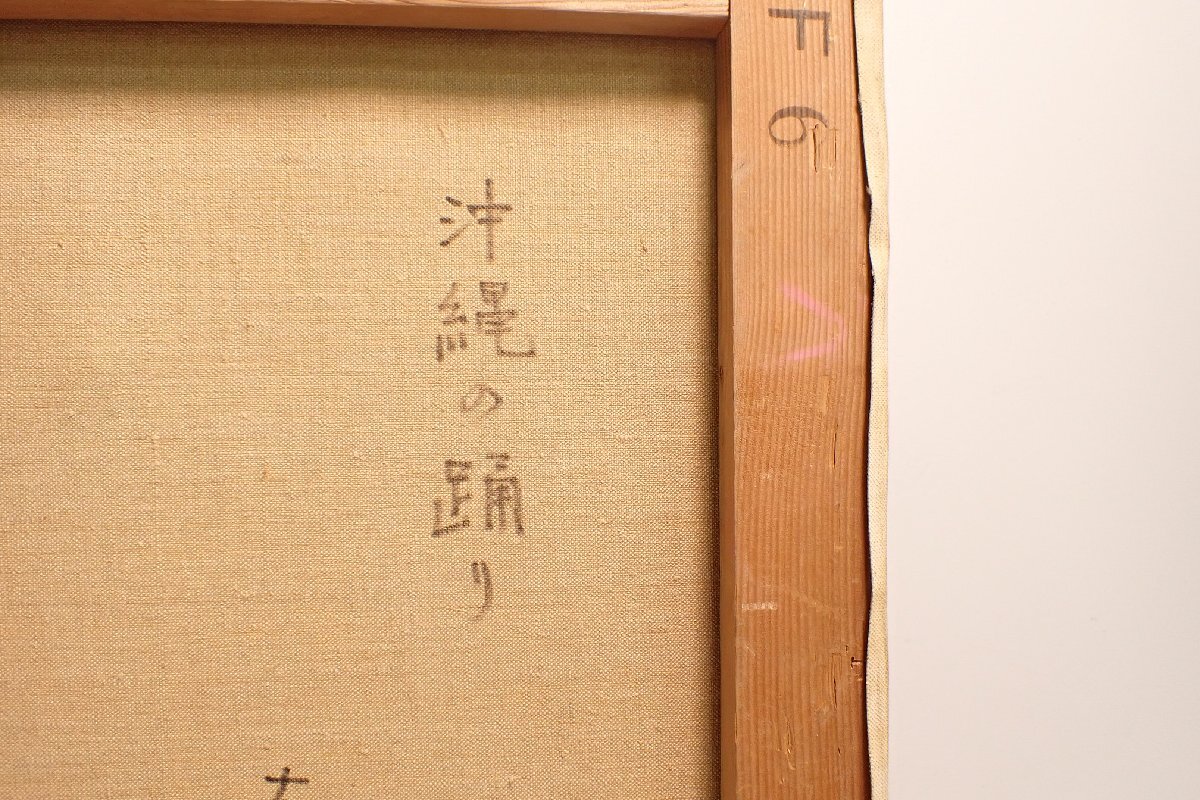 F6
沖縄の踊り